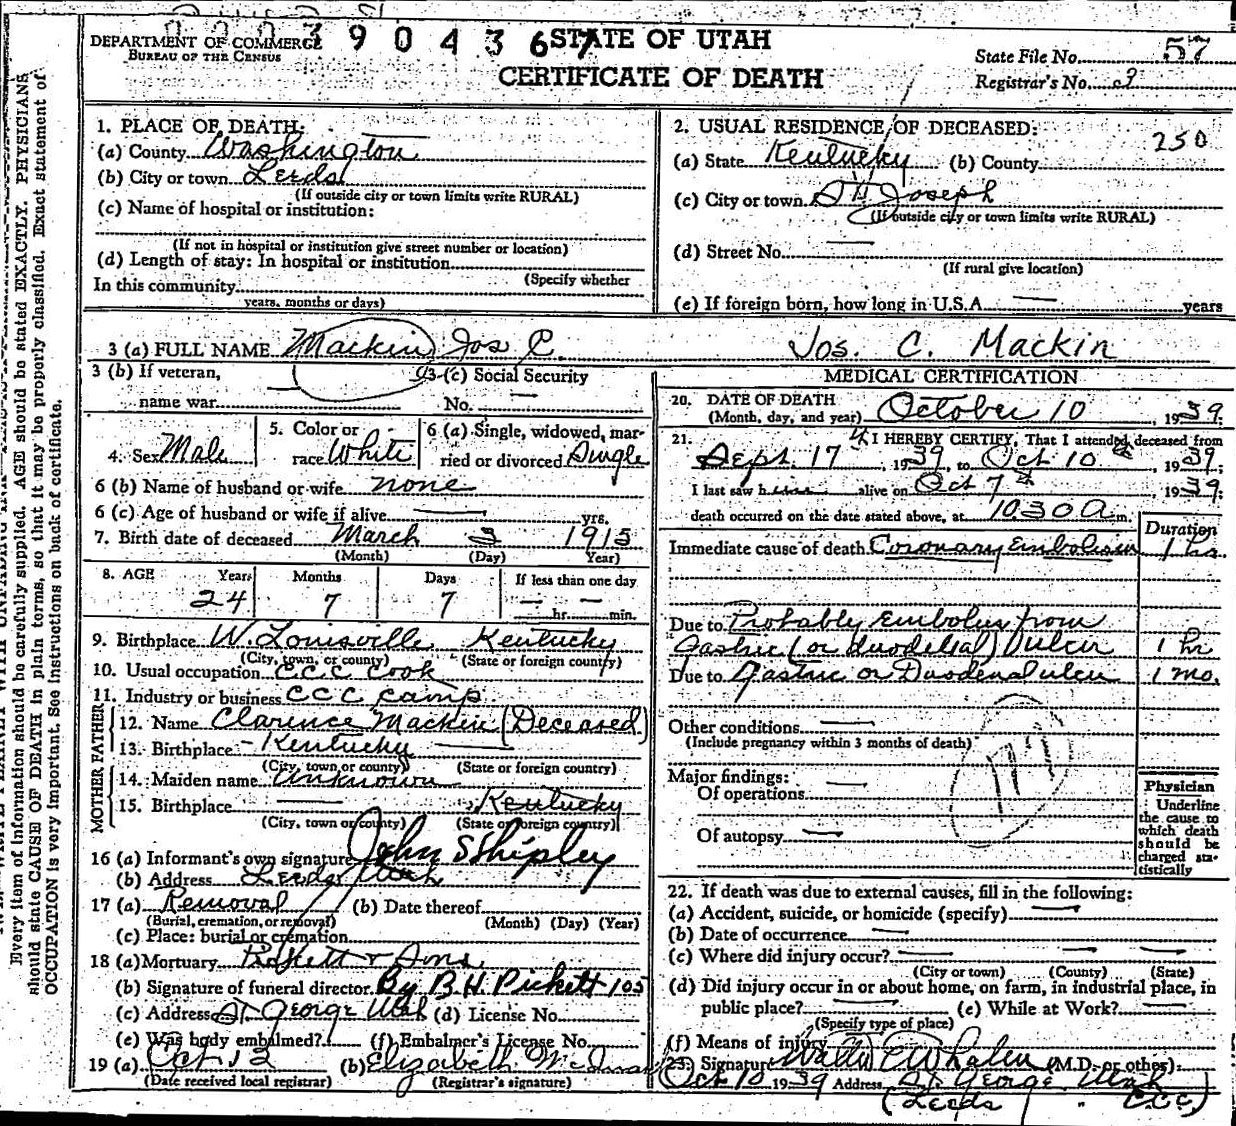 DEPARTMENT OF COMMERCE
BUREAU OF THE CENSUS
390436
STATE OF UTAH
CERTIFICATE OF DEATH
State File No. 57
Registrar's No. 3
Every item of information should be carefully supplied. AGE should be stated EXACTLY. PHYSICIANS
should state CAUSE OF DEATH in plain terms, so that it may be properly classified. Exact statement of
OCCUPATION is very important. See instructions on back of certificate.
1. PLACE OF DEATH:
(a) County Washington
(b) City or town Leeds
(If outside city or town limits write RURAL)
(c) Name of hospital or institution:
(If not in hospital or institution give street number or location)
(d) Length of stay: In hospital or institution
(Specify whether
In this community
years, months or days)
2. USUAL RESIDENCE OF DECEASED:
250
(a) State Kentucky (b) County
(c) City or town St. Joseph
(If outside city or town limits write RURAL)
(d) Street No. —
(If rural give location)
(e) If foreign born, how long in U.S.A. — years
3 (a) FULL NAME Mackin Jos C. Jos. C. Mackin
3 (b) If veteran,
name war
3 (c) Social Security
No. —
4. Sex Male
5. Color or
race White
6 (a) Single, widowed, mar-
ried or divorced Single
6 (b) Name of husband or wife none
6 (c) Age of husband or wife if alive — yrs.
7. Birth date of deceased March 3 1915
(Month) (Day) Year)
8. AGE Years Months Days If less than one day
24 7 7 — hr. — min.
9. Birthplace W. Louisville Kentucky
(City, town, or county) (State or foreign country)
10. Usual occupation C.C.C. Cook
11. Industry or business C C C Camp
FATHER
12. Name Clarence Mackin (Deceased)
13. Birthplace — Kentucky —
(City, town or county) (State or foreign country)
MOTHER
14. Maiden name Unknown
15. Birthplace — Kentucky
(City, town or county) (State or foreign country)
16 (a) Informant's own signature John S Shipley
(b) Address Leeds Utah
17 (a) Removal (b) Date thereof
(Burial, cremation, or removal) (Month) (Day) (Year)
(c) Place: burial or cremation
18 (a) Mortuary Pickett & Sons
(b) Signature of funeral director By B. H. Pickett 105
(c) Address St. George Utah (d) License No.
(e) Was body embalmed? (f) Embalmer's License No.
19 (a) Oct 12 (b) Elizabeth
(Date received local registrar) (Registrar's signature)
MEDICAL CERTIFICATION
20. DATE OF DEATH
(Month, day, and year) October 10, 1939.
21. I HEREBY CERTIFY, That I attended deceased from
Sept. 17th, 1939, to Oct 10th, 1939;
I last saw him alive on Oct 7th, 1939;
death occurred on the date stated above, at 10.30 A m.
Duration
Immediate cause of death Coronary Embolism 1 hr.
Due to Probably Embolus from
Gastric (or duodenal) Ulcer 1 hr
Due to Gastric or Duodenal ulcer 1 mo.
Other conditions —
(Include pregnancy within 3 months of death)
Major findings:
Of operations —
Of autopsy —
Physician
Underline
the cause to
which death
should be
charged sta-
tistically
22. If death was due to external causes, fill in the following:
(a) Accident, suicide, or homicide (specify) —
(b) Date of occurrence —
(c) Where did injury occur? — — —
(City or town) (County) (State)
(d) Did injury occur in or about home, on farm, in industrial place, in
public place? — (e) While at Work? —
(Specify type of place)
(f) Means of injury
23. Signature Walter E Whalen (M.D. or other)
Oct 10 1939 Address St. George Utah
(Leeds C.C.C.)